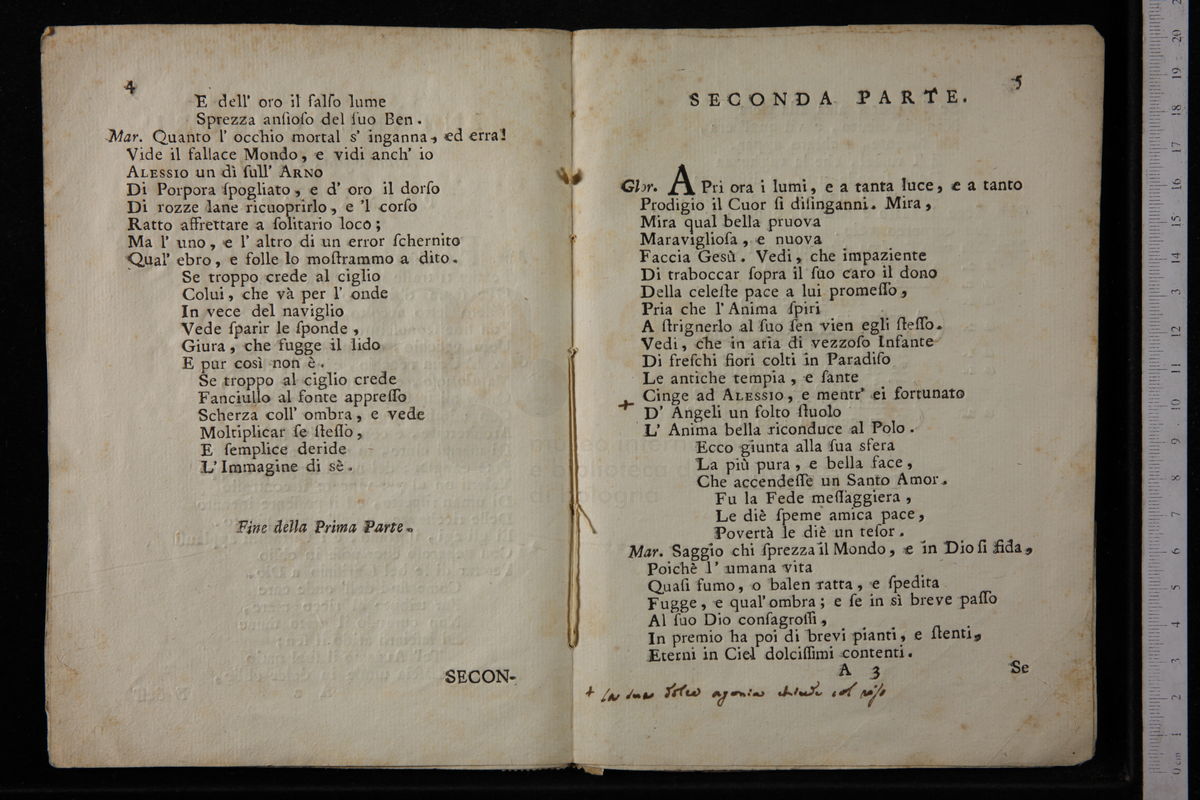 4
E dell' oro il falſo lume
Sprezza anſioſo del ſuo Ben.
Mar. Quanto l' occhio mortal s' inganna, ed erra!
Vide il fallace Mondo, e vidi anch' io
ALESSIO un dì ſull' ARNO
Di Porpora ſpogliato, e d' oro il dorſo
Di rozze lane ricuoprirlo, e 'l corſo
Ratto affrettare a ſolitario loco;
Ma l' uno, e l' altro di un error ſchernito
Qual' ebro, e folle lo moſtrammo a dito.
Se troppo crede al ciglio
Colui, che và per l' onde
In vece del naviglio
Vede ſparir le ſponde,
Giura, che fugge il lido
E pur così non è.
Se troppo al ciglio crede
Fanciullo al fonte appreſſo
Scherza coll' ombra, e vede
Moltiplicar ſe ſteſſo,
E ſemplice deride
L' Immagine di sè.
Fine della Prima Parte.
SECON-
5
SECONDA PARTE.
Glor. APri ora i lumi, e a tanta luce, e a tanto
Prodigio il Cuor ſi diſinganni. Mira,
Mira qual bella pruova
Maraviglioſa, e nuova
Faccia Gesù. Vedi, che impaziente
Di traboccar ſopra il ſuo caro il dono
Della celeſte pace a lui promeſſo,
Pria che l' Anima ſpiri
A ſtrignerlo al ſuo ſen vien egli ſteſſo.
Vedi, che in aria di vezzoſo Infante
Di freſchi fiori colti in Paradiſo
Le antiche tempia, e ſante
Cinge ad ALESSIO, e mentr' ei fortunato
+ D' Angeli un folto ſtuolo
L' Anima bella riconduce al Polo.
Ecco giunta alla ſua sfera
La più pura, e bella face,
Che accendeſſe un Santo Amor.
Fu la Fede meſſaggiera,
Le diè ſpeme amica pace,
Povertà le diè un teſor.
Mar. Saggio chi ſprezza il Mondo, e in Dio ſi fida,
Poichè l' umana vita
Quaſi fumo, o balen ratta, e ſpedita
Fugge, e qual' ombra; e ſe in sì breve paſſo
Al ſuo Dio conſagroſſi,
In premio ha poi di brevi pianti, e ſtenti,
Eterni in Ciel dolciſſimi contenti.
A 3
Se
+ la sua dolce agonia chiude col riso
museo
biblioteca
di bologna